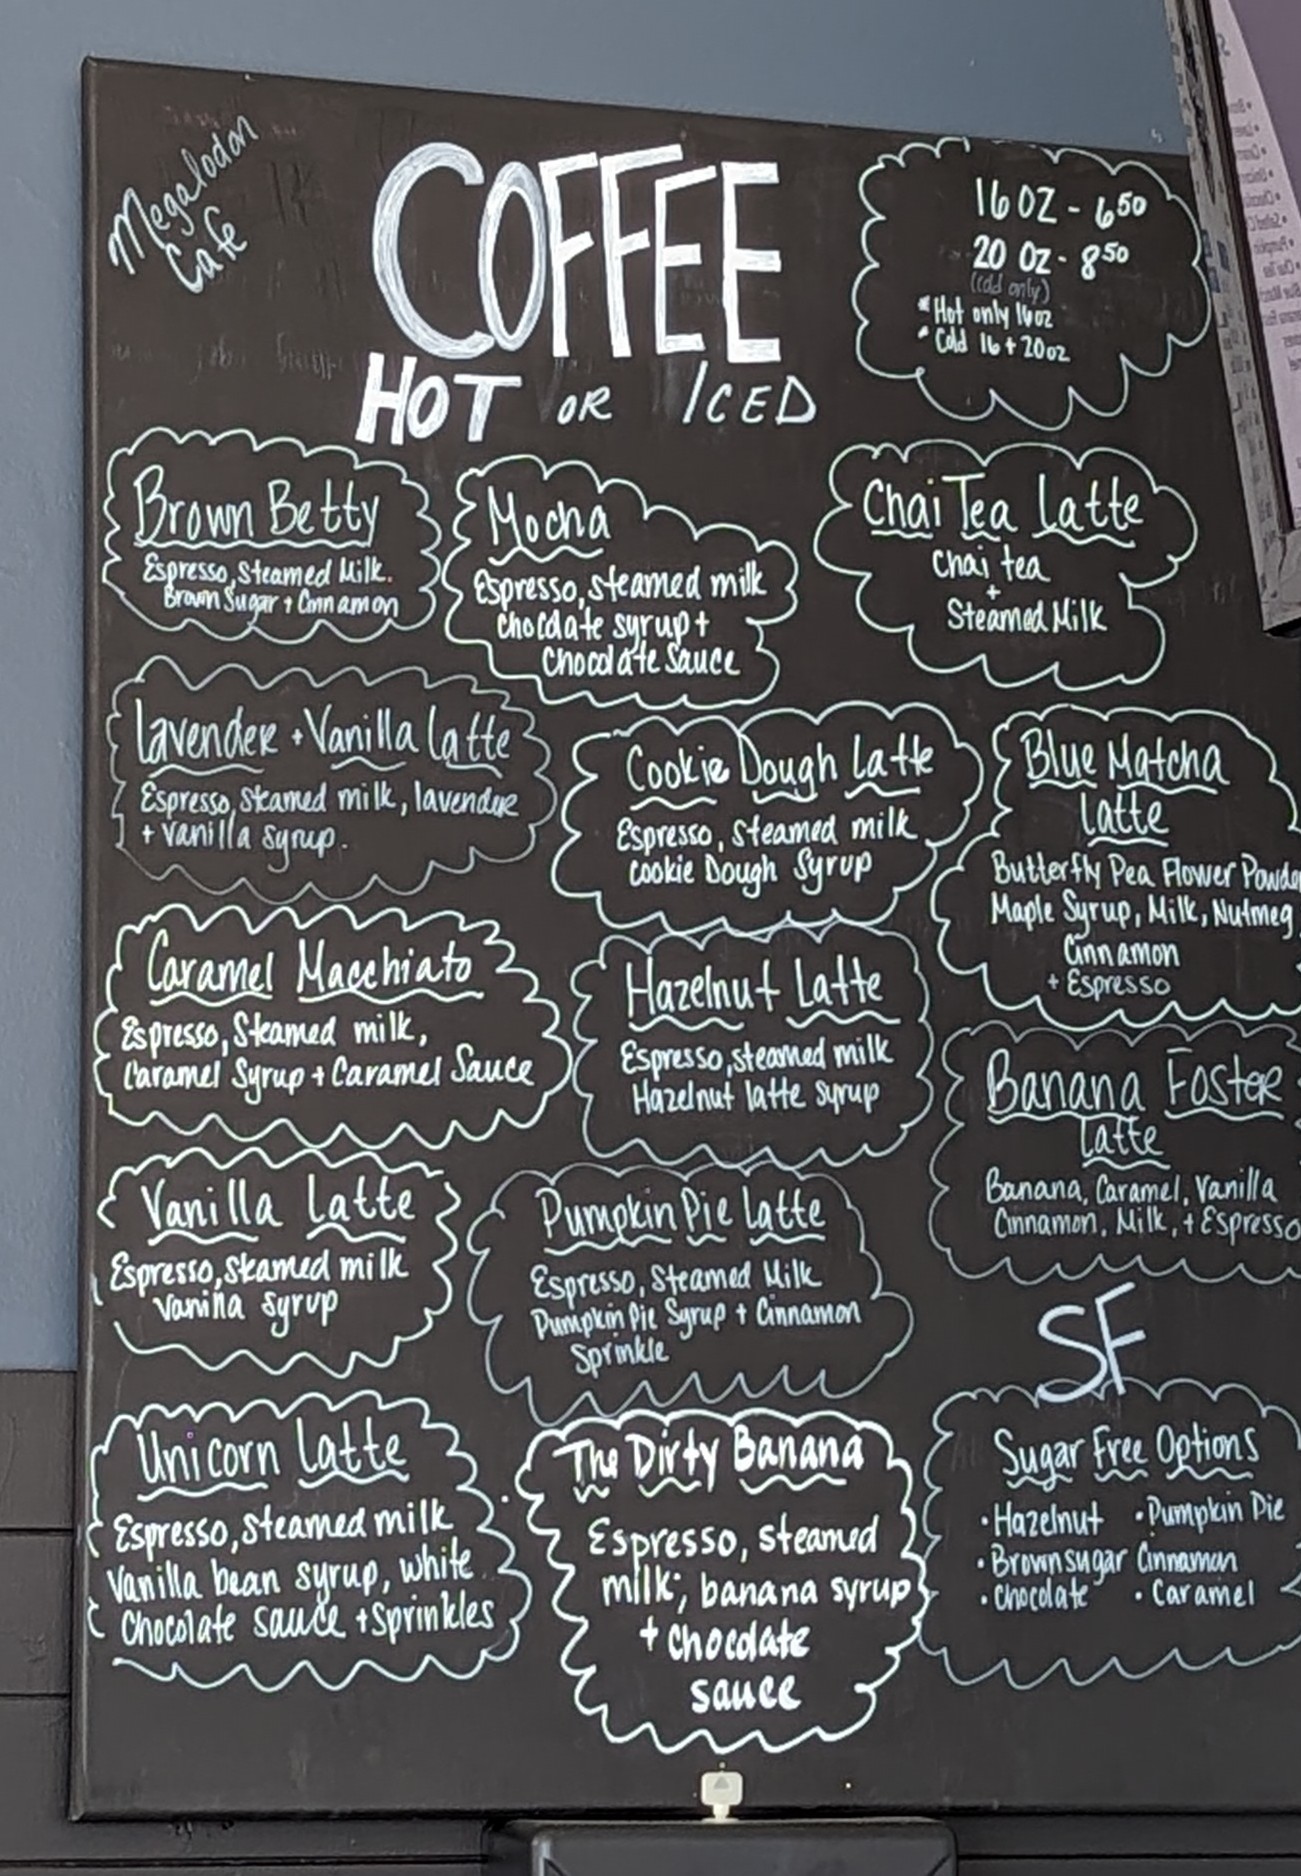 Megalodon
Cafe
COFFEE
HOT OR ICED
16 OZ - 6.50
20 OZ - 8.50
(cold only)
*Hot only 16oz
*Cold 16 + 20oz
Brown Betty
Espresso, Steamed Milk.
Brown Sugar + Cinnamon
Mocha
Espresso, steamed milk
chocolate syrup +
Chocolate Sauce
Chai Tea Latte
Chai tea
+
Steamed Milk
Lavender + Vanilla Latte
Espresso, Steamed milk, lavender
+ Vanilla syrup.
Cookie Dough Latte
Espresso, steamed milk
Cookie Dough Syrup
Blue Matcha
Latte
Butterfly Pea Flower Powde
Maple Syrup, Milk, Nutmeg
Cinnamon
+ Espresso
Caramel Macchiato
Espresso, Steamed milk,
Caramel Syrup + Caramel Sauce
Hazelnut Latte
Espresso, steamed milk
Hazelnut latte syrup
Banana Foster
Latte
Banana, Caramel, Vanilla
Cinnamon, Milk, + Espresso
Vanilla Latte
Espresso, steamed milk
Vanilla syrup
Pumpkin Pie Latte
Espresso, Steamed Milk
Pumpkin Pie Syrup + Cinnamon
Sprinkle
SF
Sugar Free Options
• Hazelnut • Pumpkin Pie
• Brown sugar Cinnamon
• Chocolate • Caramel
Unicorn Latte
Espresso, steamed milk
Vanilla bean syrup, white
Chocolate sauce + Sprinkles
The Dirty Banana
Espresso, steamed
milk, banana syrup
+ chocolate
sauce